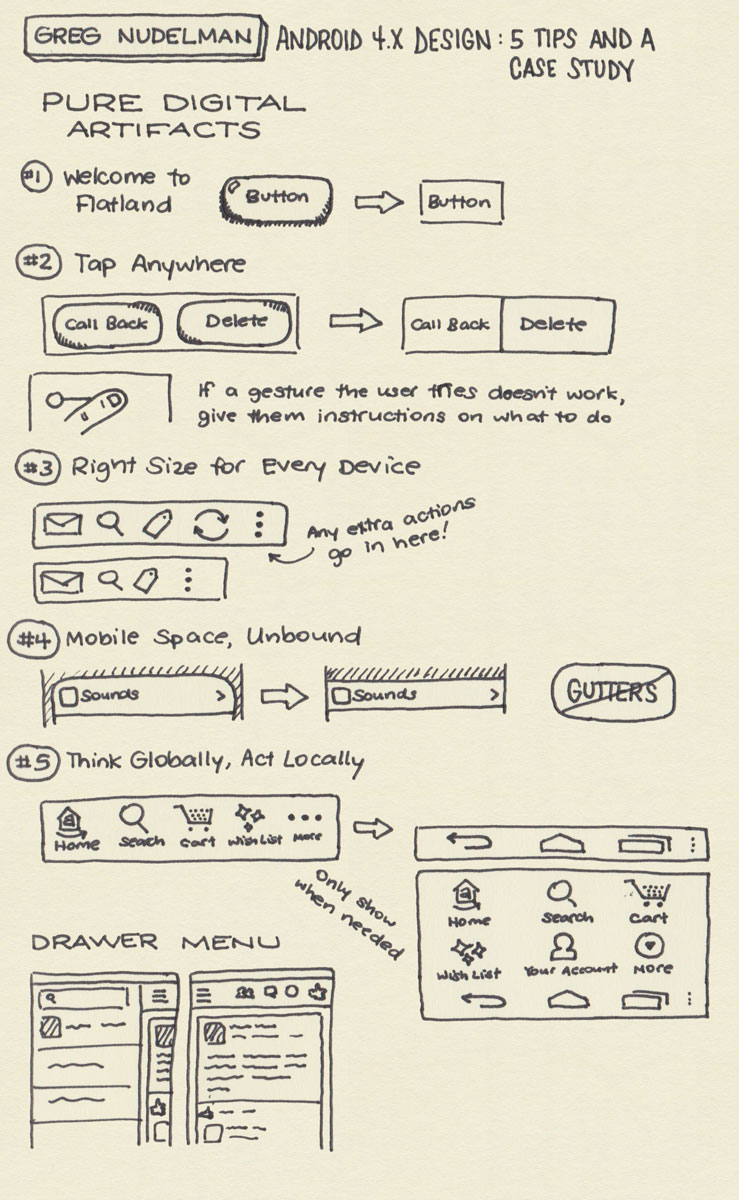 GREG NUDELMAN
ANDROID 4.X DESIGN: 5 TIPS AND A
CASE STUDY
PURE DIGITAL
ARTIFACTS
#1 Welcome to
Flatland
Button
Button
#2 Tap Anywhere
Call Back
Delete
Call Back
Delete
If a gesture the user tries doesn't work,
give them instructions on what to do
#3 Right Size for Every Device
Any extra actions
go in here!
#4 Mobile Space, Unbound
Sounds >
Sounds >
GUTTERS
#5 Think Globally, Act Locally
a
Home Search Cart Wish List More
Only show
when needed
a
Home Search Cart
Wish List Your Account More
DRAWER MENU